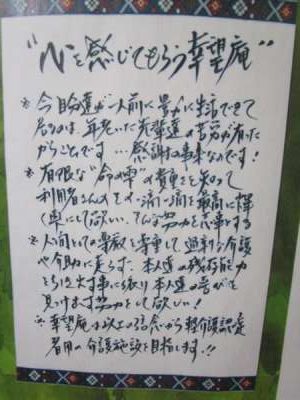 "心を感じてもらう幸望庵"
※今自分達が一人前に豊かに生活できて
居るのは、年老いた先輩達の苦労が有った
からこそです…感謝の事来なのです!
※有限な"命の時"の貴重さを知って
利用者さんの 一源一源を最高に輝
く事にして欲しい。そんな努力を志事とする
※人間としての尊厳を尊重して過剰な介護
や介助に走らず、本人達の残存能力
を大事に振り本人達の喜びを
見け出す努力をして欲しい!
※幸望庵は以上の信念から軽介護認定
者用の介護施設を目指します。!!